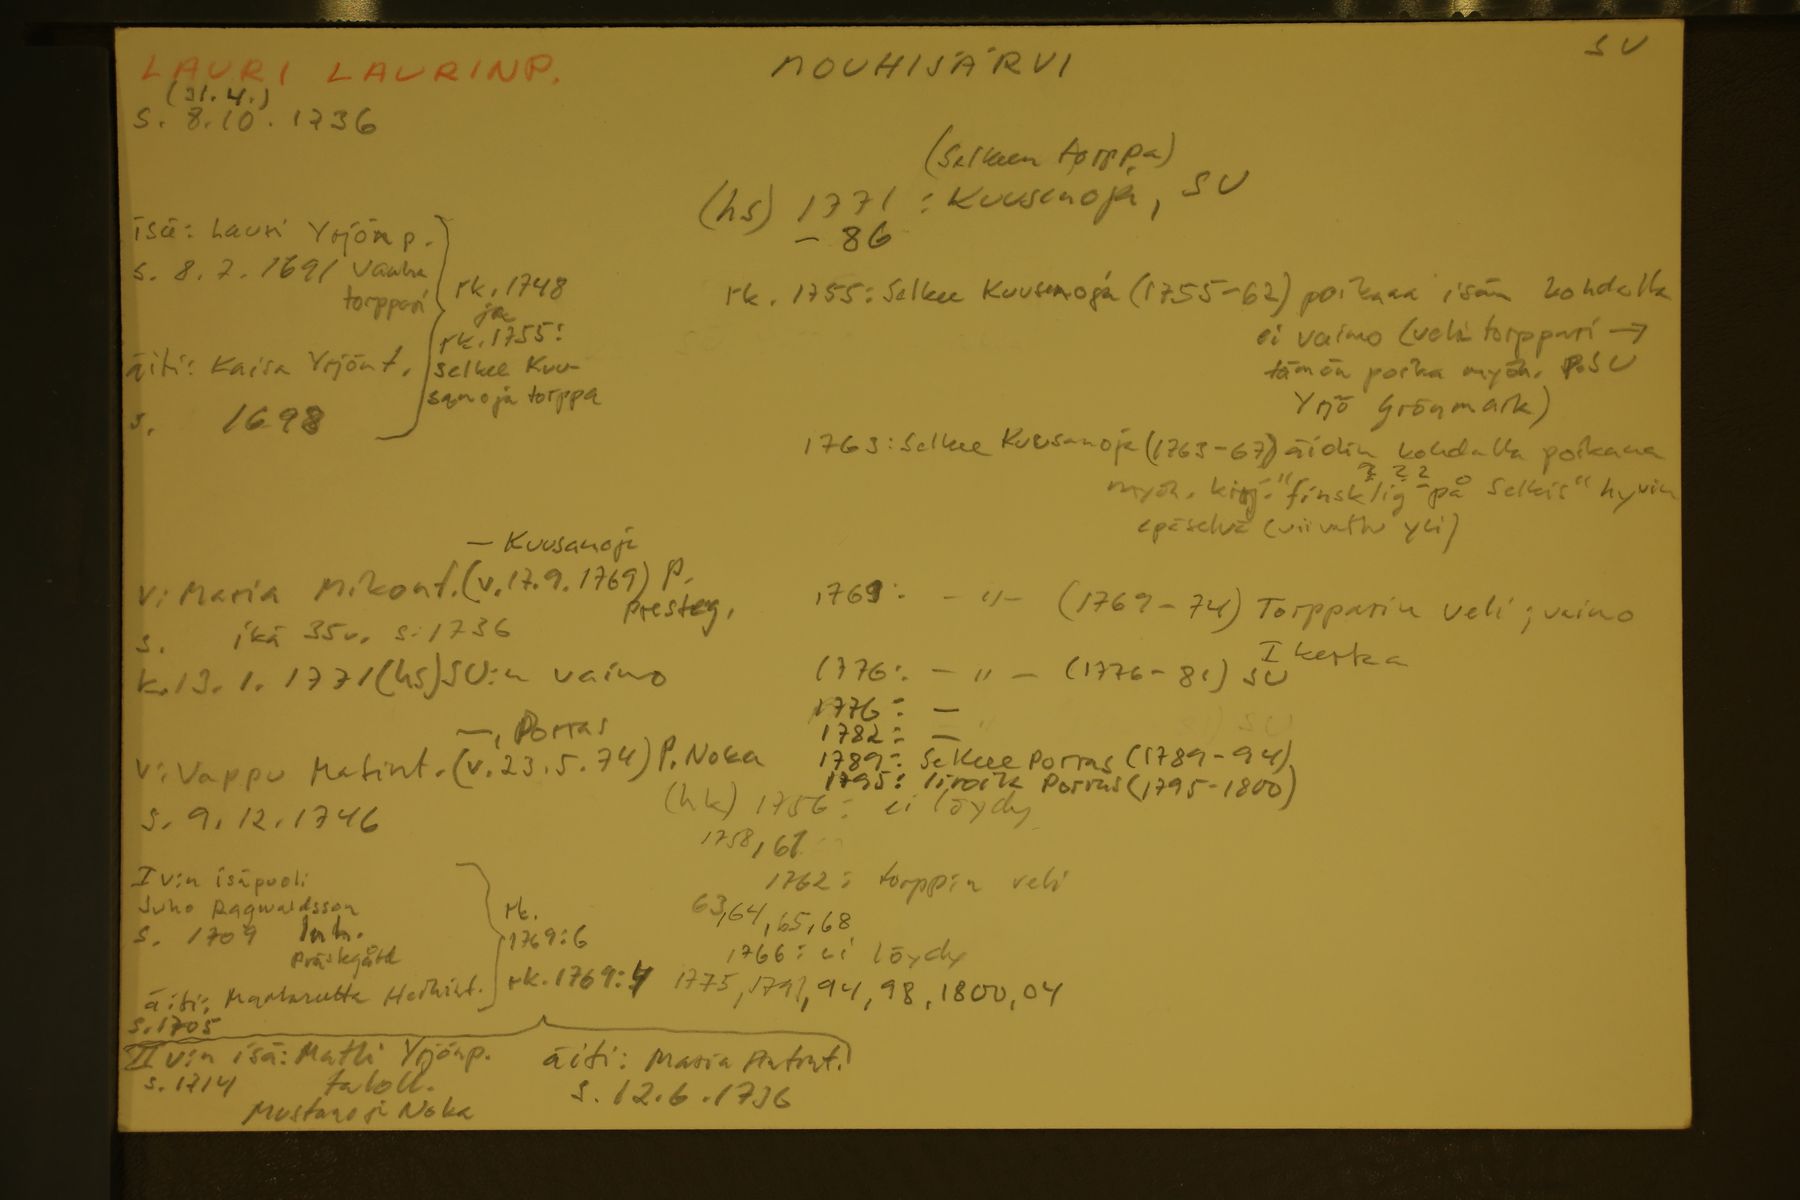 LAURI LAURINP.
MOUHIJÄRVI
SU
(31.4.)
s. 8.10.1736
(Selkeen torppa)
(hs) 1771 : Kuusenoja, SU
- 86
isä: Lauri Yrjönp.
s. 8.7.1691 vanha
torppari
rk. 1748
ja
rk. 1755:
Selkee Kuu-
sanoja torppa
äiti: Kaisa Yrjönt.
s. 1698
rk. 1755: Selkee Kuusenoja (1755-62) poikana isän kohdalla
ei vaimo (veli torppari →
tämän poika myöh. P.SU
Yrjö Grönmark)
1763: Selkee Kuusanoja (1763-67) äidin kohdalla poikana
? ? ?
myöh. kirj. "finsklig på Selkis" hyvin
epäselvä (viivattu yli)
— Kuusanoja
v: Maria Mikont. (v. 17.9.1769) P.
Presteg.
s. ikä 35v. s. 1736
k. 13.1.1771 (hs) SU:n vaimo
1769: - " - (1769-74) Torpparin veli ; vaimo
I kerta
1776: - " - (1776-81) SU
1776: —
1782: —
1789: Selkee Porras (1789-94)
1795: Porras (1795-1800)
—, Porras
v: Vappu Matint. (v. 23.5.74) P. Noka
s. 9.12.1746
(hk) 1756: ei löydy
1758, 61
1762: torppin veli
63, 64, 65, 68
1766: ei löydy
1775, 1791, 94, 98, 1800, 04
I v:n isäpuoli
Juho Ragwaldsson
s. 1709 Inh.
Präskgård
rk.
1769:6
rk. 1769:4
äiti: Heikint.
s. 1705
II v:n isä: Matti Yrjönp.
s. 1714 taloll.
Mustanoja Noka
äiti: Maria Antint.
s. 12.6.1736